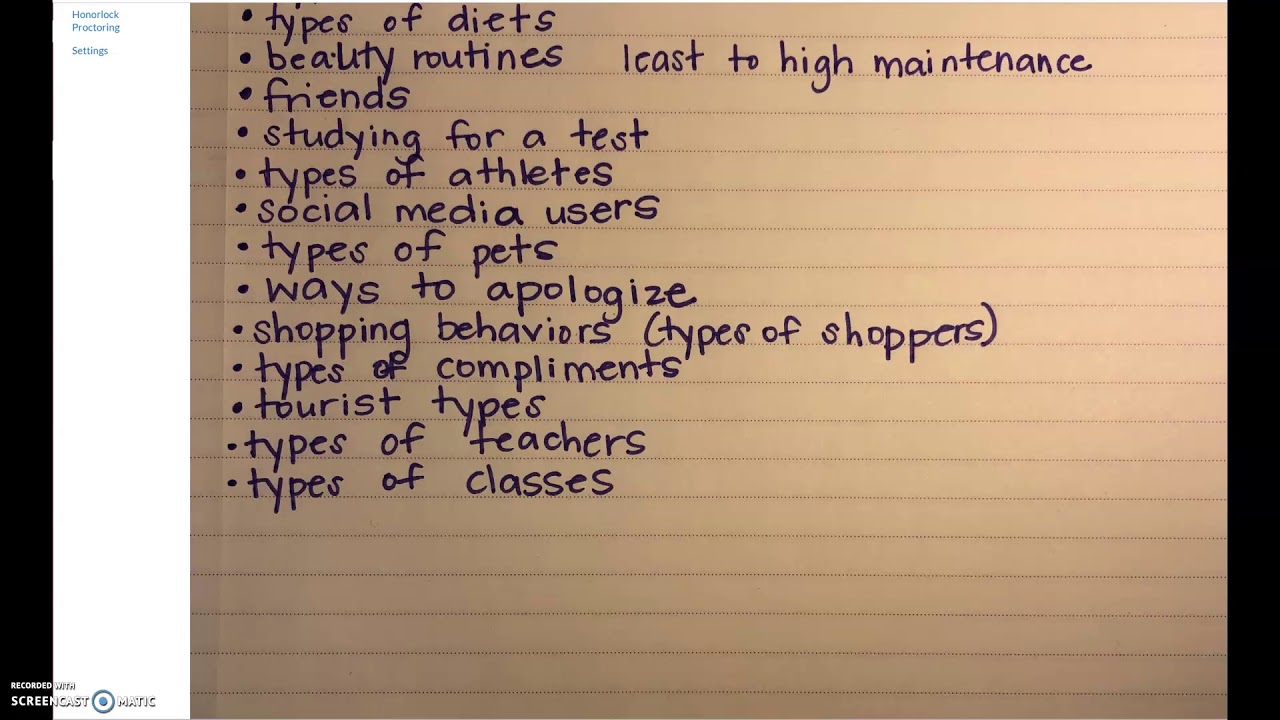 Honorlock
Proctoring
Settings
• types of diets
• beauty routines least to high maintenance
• friends
• studying for a test
• types of athletes
• social media users
• types of pets
• ways to apologize
• shopping behaviors (types of shoppers)
• types of compliments
• tourist types
• types of teachers
• types of classes
RECORDED WITH
SCREENCAST MATIC